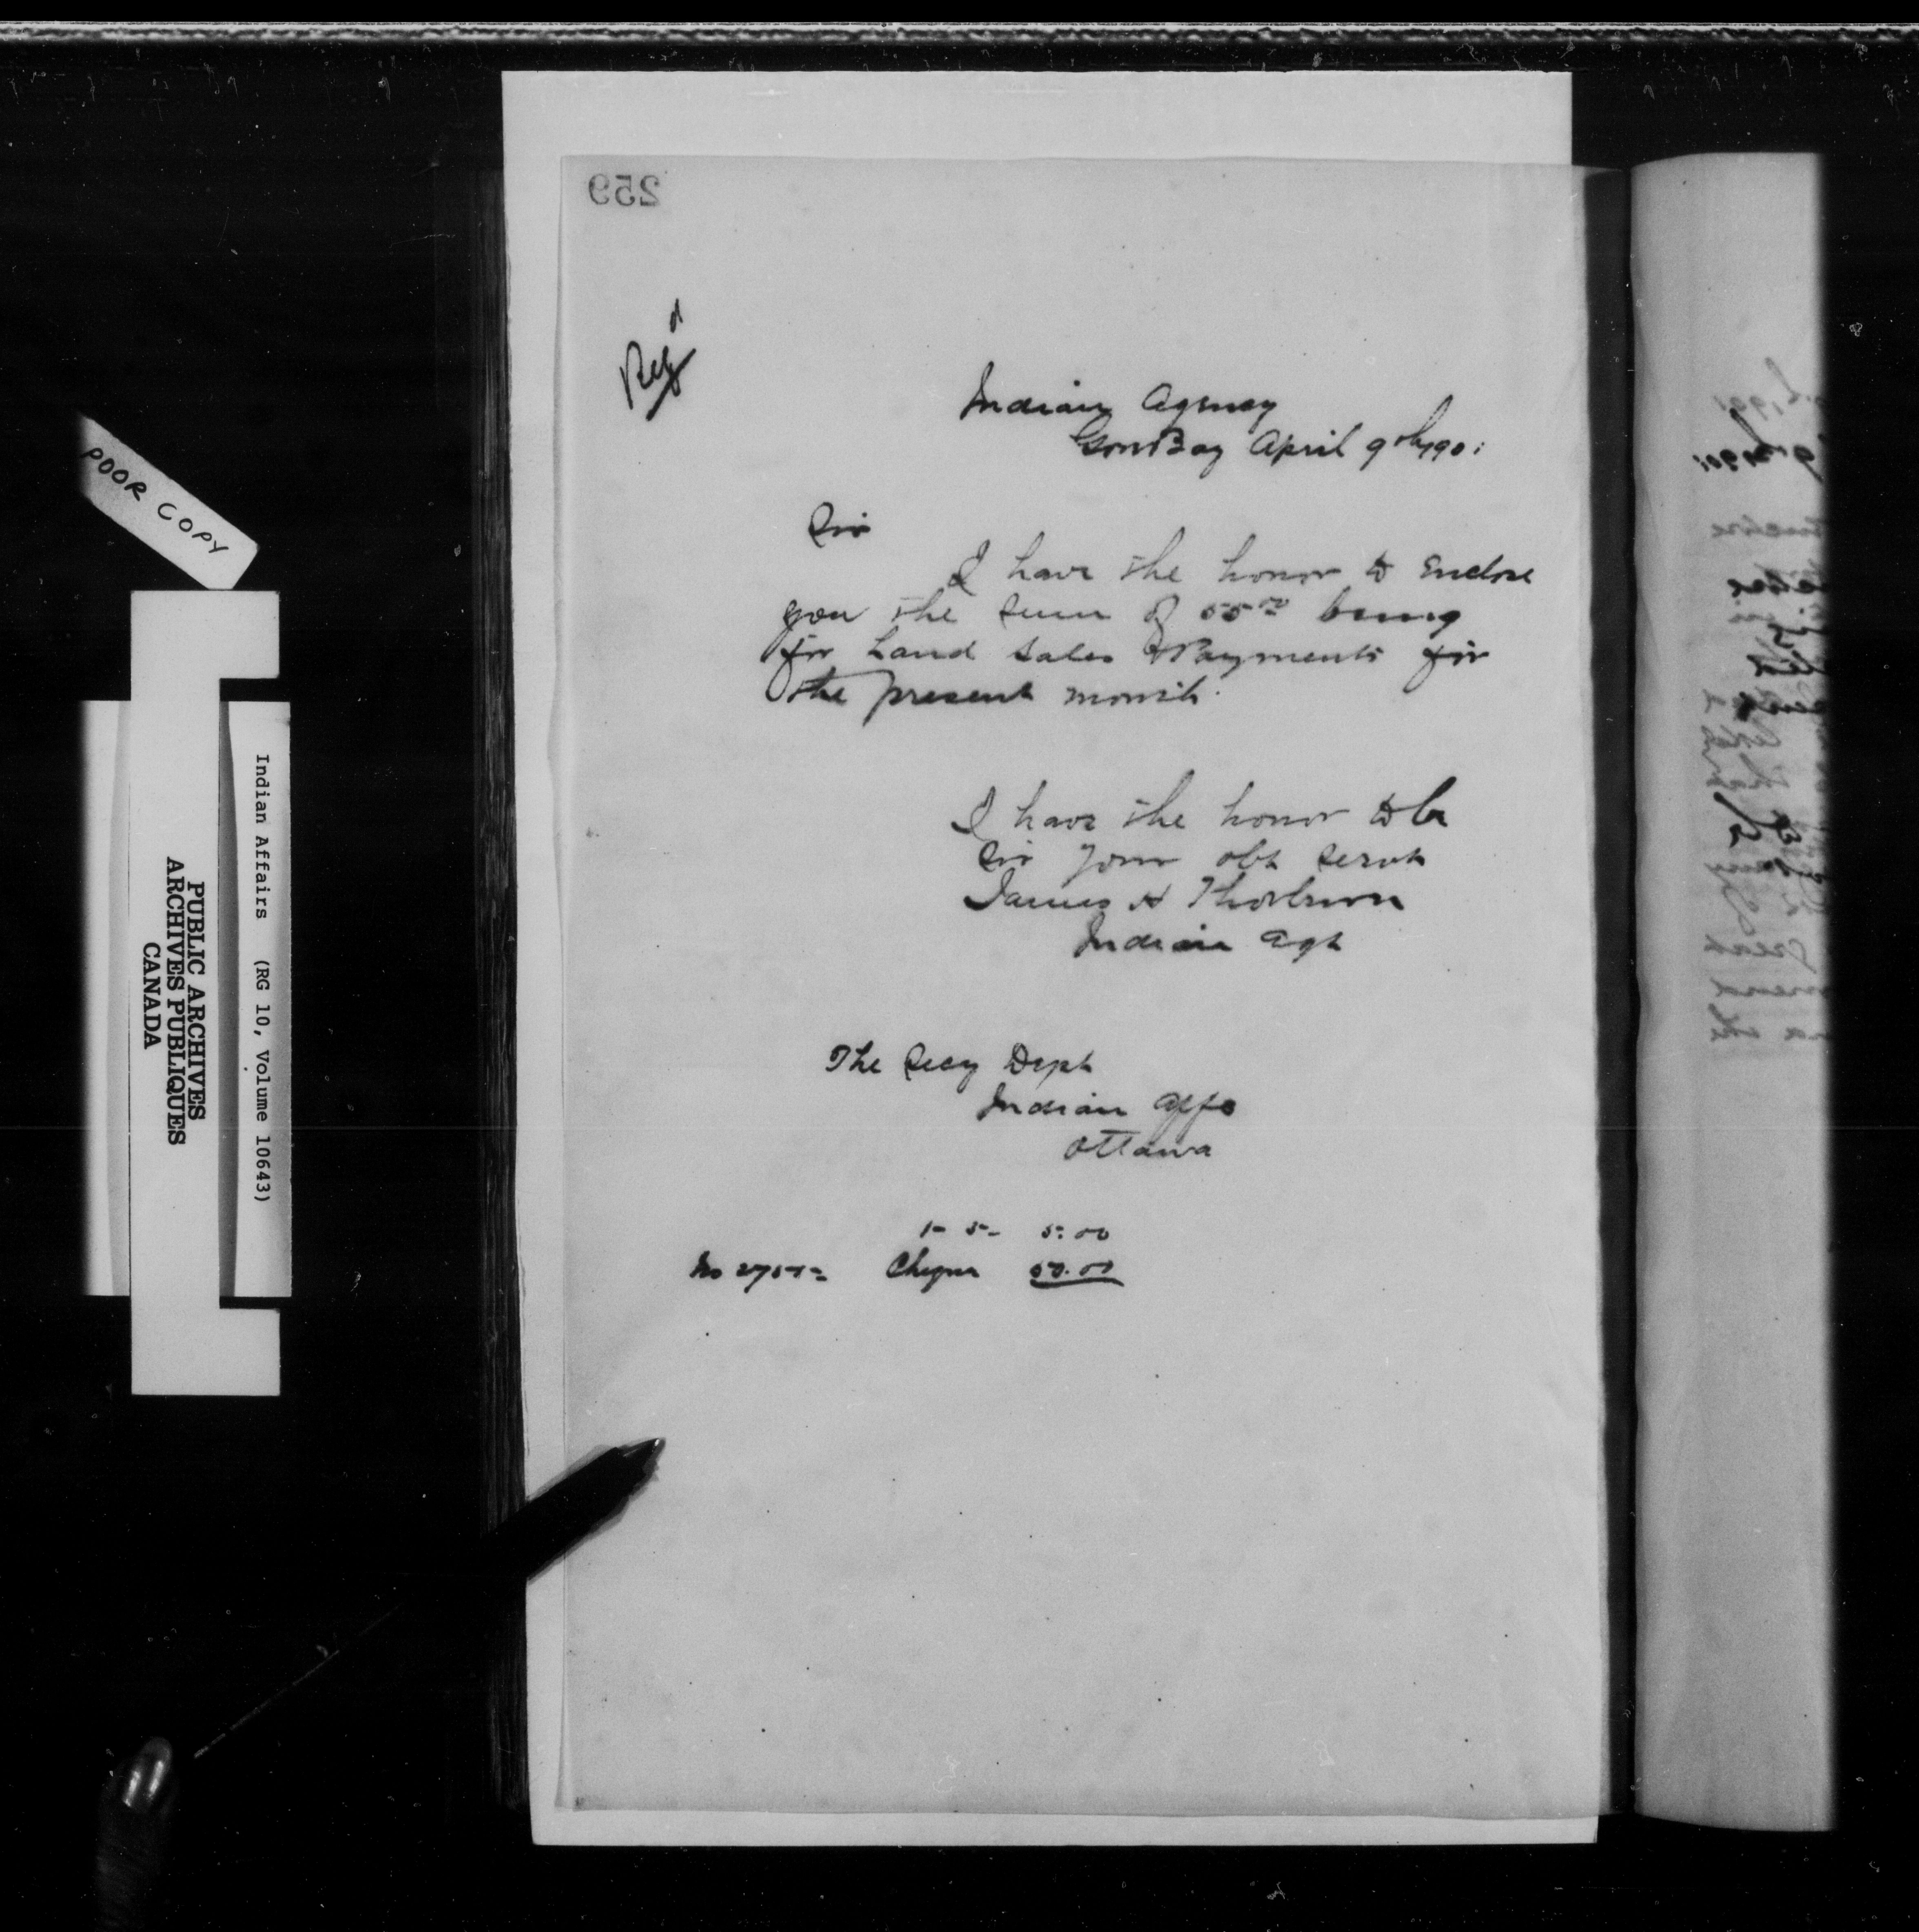 259
Regd
Indian Agency
Gore Bay April 9th 1901
Sir
I have the honor to Enclose
you the sum of 55.00 being
for Land Sales & Payments for
the present month.
I have the honor to be
Sir your obt servt
James H Thorburn
Indian Agt
The Secy Dept
Indian Affs
Ottawa
1- 5- 5.00
No Cheque 50.00
POOR COPY
Indian Affairs (RG 10, Volume 10643)
PUBLIC ARCHIVES
ARCHIVES PUBLIQUES
CANADA